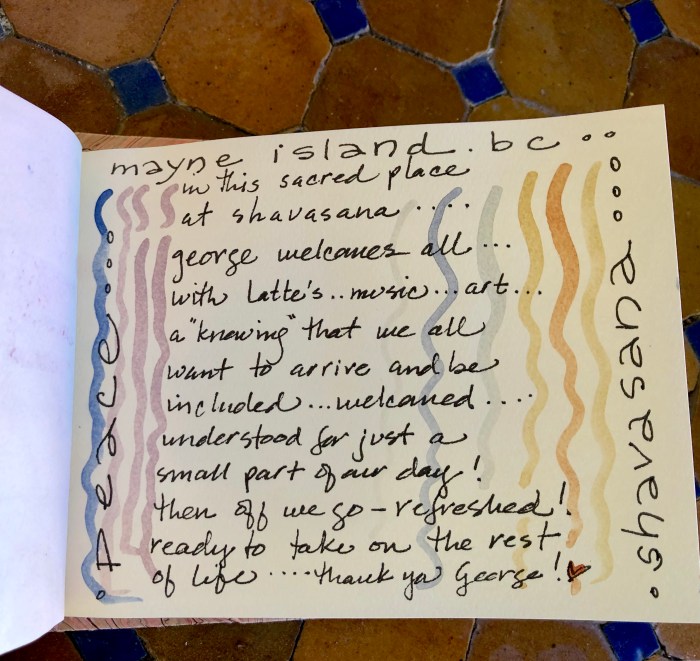 mayne island. bc..
in this sacred place
at shavasana ....
george welcomes all ...
with Latte's .. music ... art ...
a "knowing" that we all
want to arrive and be
included ... welcomed ....
understood for just a
small part of our day!
then off we go - refreshed!
ready to take on the rest
of life .... thank ya George!
peace....
.shavasana....